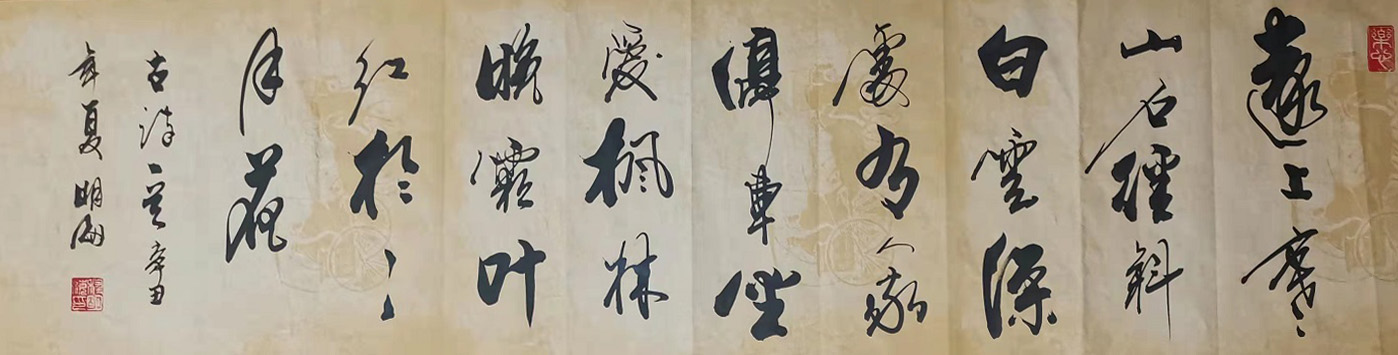 遠上寒
山石徑斜
白雲深
處有人家
停車坐
愛楓林
晚霜叶
红於二
月花
古诗一首辛丑
年夏明海